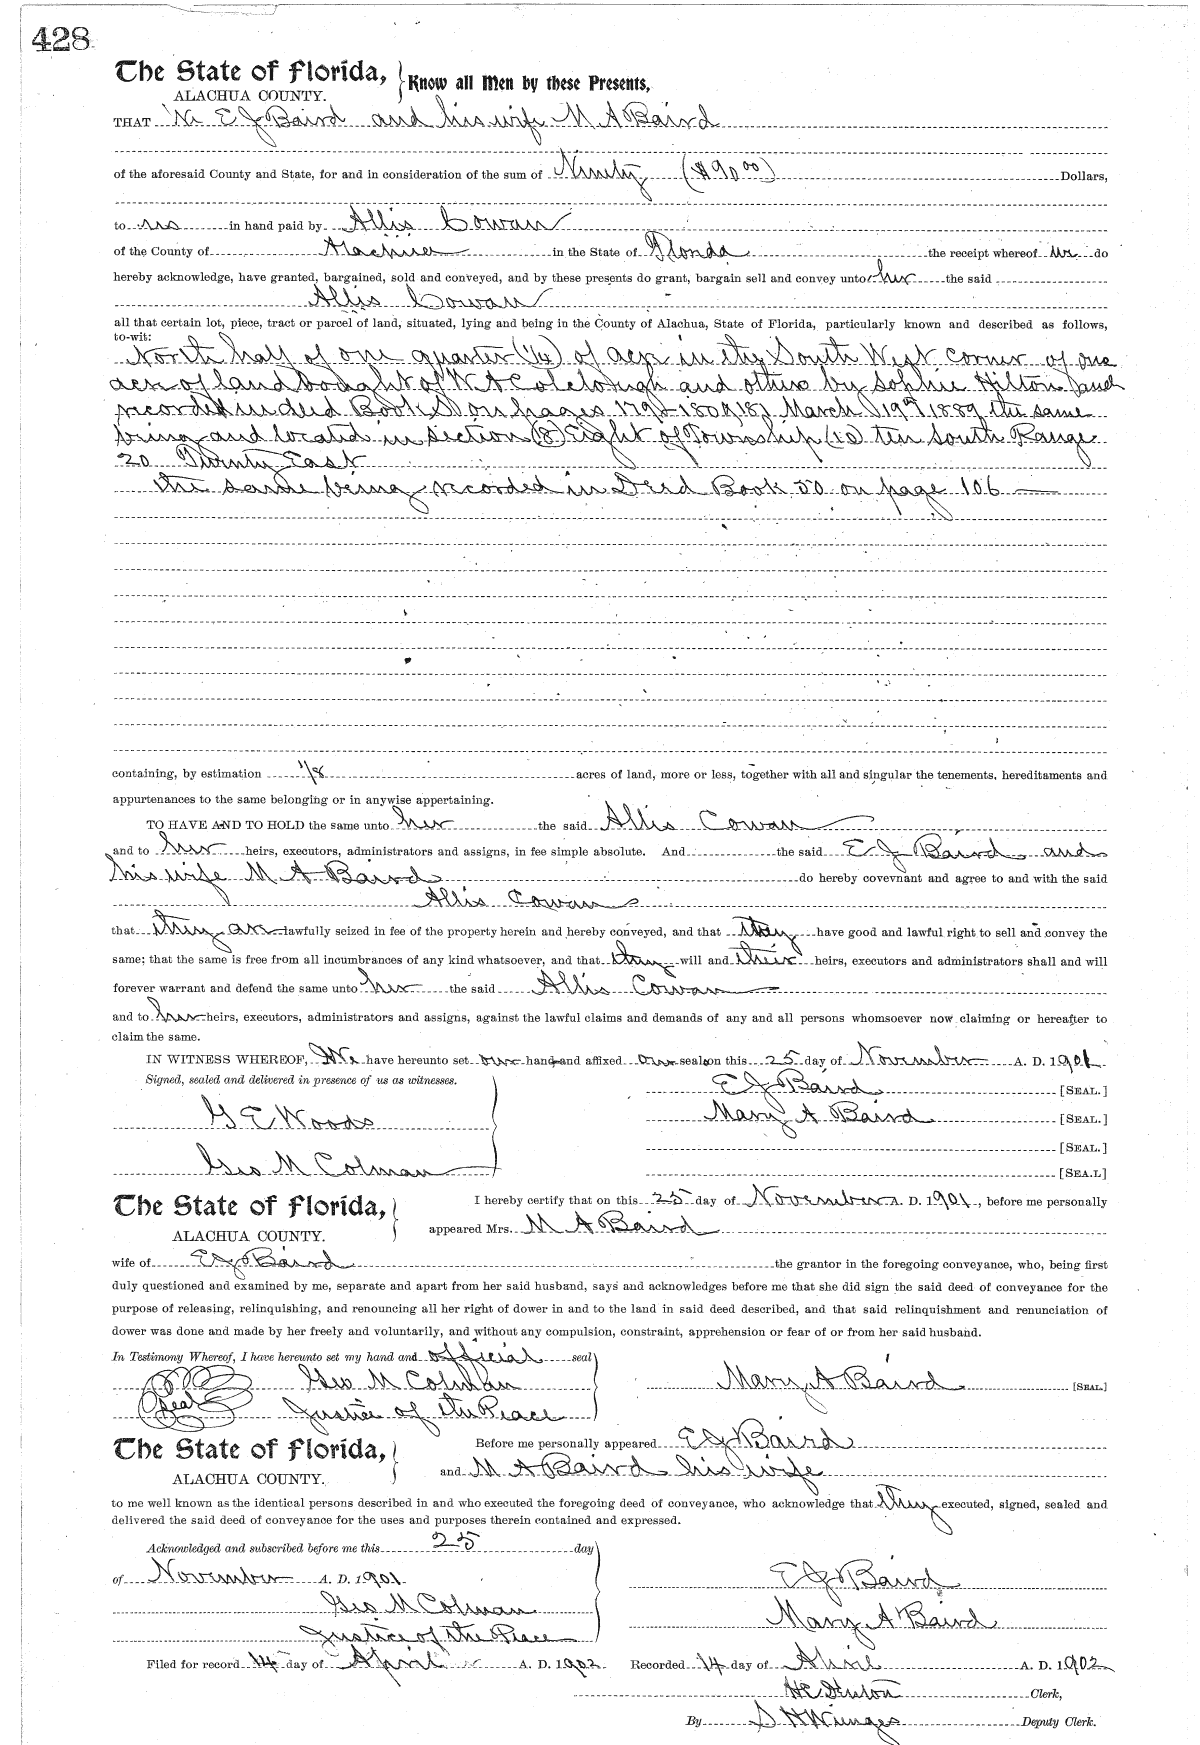 428
The State of Florida, Know all Men by these Presents,
ALACHUA COUNTY.
THAT We E J Baird and his wife M A Baird
of the aforesaid County and State, for and in consideration of the sum of Ninety ($90 00) Dollars,
to us in hand paid by Allis Cowan
of the County of Alachua in the State of Florida the receipt whereof we do
hereby acknowledge, have granted, bargained, sold and conveyed, and by these presents do grant, bargain sell and convey unto her the said
Allis Cowan
all that certain lot, piece, tract or parcel of land, situated, lying and being in the County of Alachua, State of Florida, particularly known and described as follows,
to-wit:
North half of one quarter (1/4) of acre in the South West corner of one
acre of land bought of W A Colclough and others by Sophie Hilton and
recorded in deed Book S on pages 179 - 180 & 181 March 19th 1889 the same
being and located in section (8) Eight of Township (10) ten South Range
20 Twenty East
the same being recorded in Deed Book 50 on page 106
containing, by estimation 1/8 acres of land, more or less, together with all and singular the tenements, hereditaments and
appurtenances to the same belonging or in anywise appertaining.
TO HAVE AND TO HOLD the same unto her the said Allis Cowan
and to her heirs, executors, administrators and assigns, in fee simple absolute. And the said E J Baird and
his wife M A Baird do hereby covevnant and agree to and with the said
Allis Cowan
that they are lawfully seized in fee of the property herein and hereby conveyed, and that they have good and lawful right to sell and convey the
same; that the same is free from all incumbrances of any kind whatsoever, and that they will and their heirs, executors and administrators shall and will
forever warrant and defend the same unto her the said Allis Cowan
and to her heirs, executors, administrators and assigns, against the lawful claims and demands of any and all persons whomsoever now claiming or hereafter to
claim the same.
IN WITNESS WHEREOF, We have hereunto set our hand and affixed our seals on this 25 day of November A. D. 1901
Signed, sealed and delivered in presence of us as witnesses. E J Baird [SEAL.]
G E Woods Mary A Baird [SEAL.]
[SEAL.]
Geo M Colman [SEA.L]
The State of Florida, I hereby certify that on this 25 day of November A. D. 1901, before me personally
ALACHUA COUNTY. appeared Mrs. M A Baird
wife of E J Baird the grantor in the foregoing conveyance, who, being first
duly questioned and examined by me, separate and apart from her said husband, says and acknowledges before me that she did sign the said deed of conveyance for the
purpose of releasing, relinquishing, and renouncing all her right of dower in and to the land in said deed described, and that said relinquishment and renunciation of
dower was done and made by her freely and voluntarily, and without any compulsion, constraint, apprehension or fear of or from her said husband.
In Testimony Whereof, I have hereunto set my hand and official seal
Seal Geo M Colman Mary A Baird [SEAL.]
Justice of the Peace
The State of Florida, Before me personally appeared E J Baird
ALACHUA COUNTY. and M A Baird his wife
to me well known as the identical persons described in and who executed the foregoing deed of conveyance, who acknowledge that they executed, signed, sealed and
delivered the said deed of conveyance for the uses and purposes therein contained and expressed.
Acknowledged and subscribed before me this 25 day
of November A. D. 1901 E J Baird
Geo M Colman Mary A Baird
Justice of the Peace
Filed for record 14 day of April A. D. 1902 Recorded 14 day of April A. D. 1902
Clerk,
By S H Wienges Deputy Clerk.